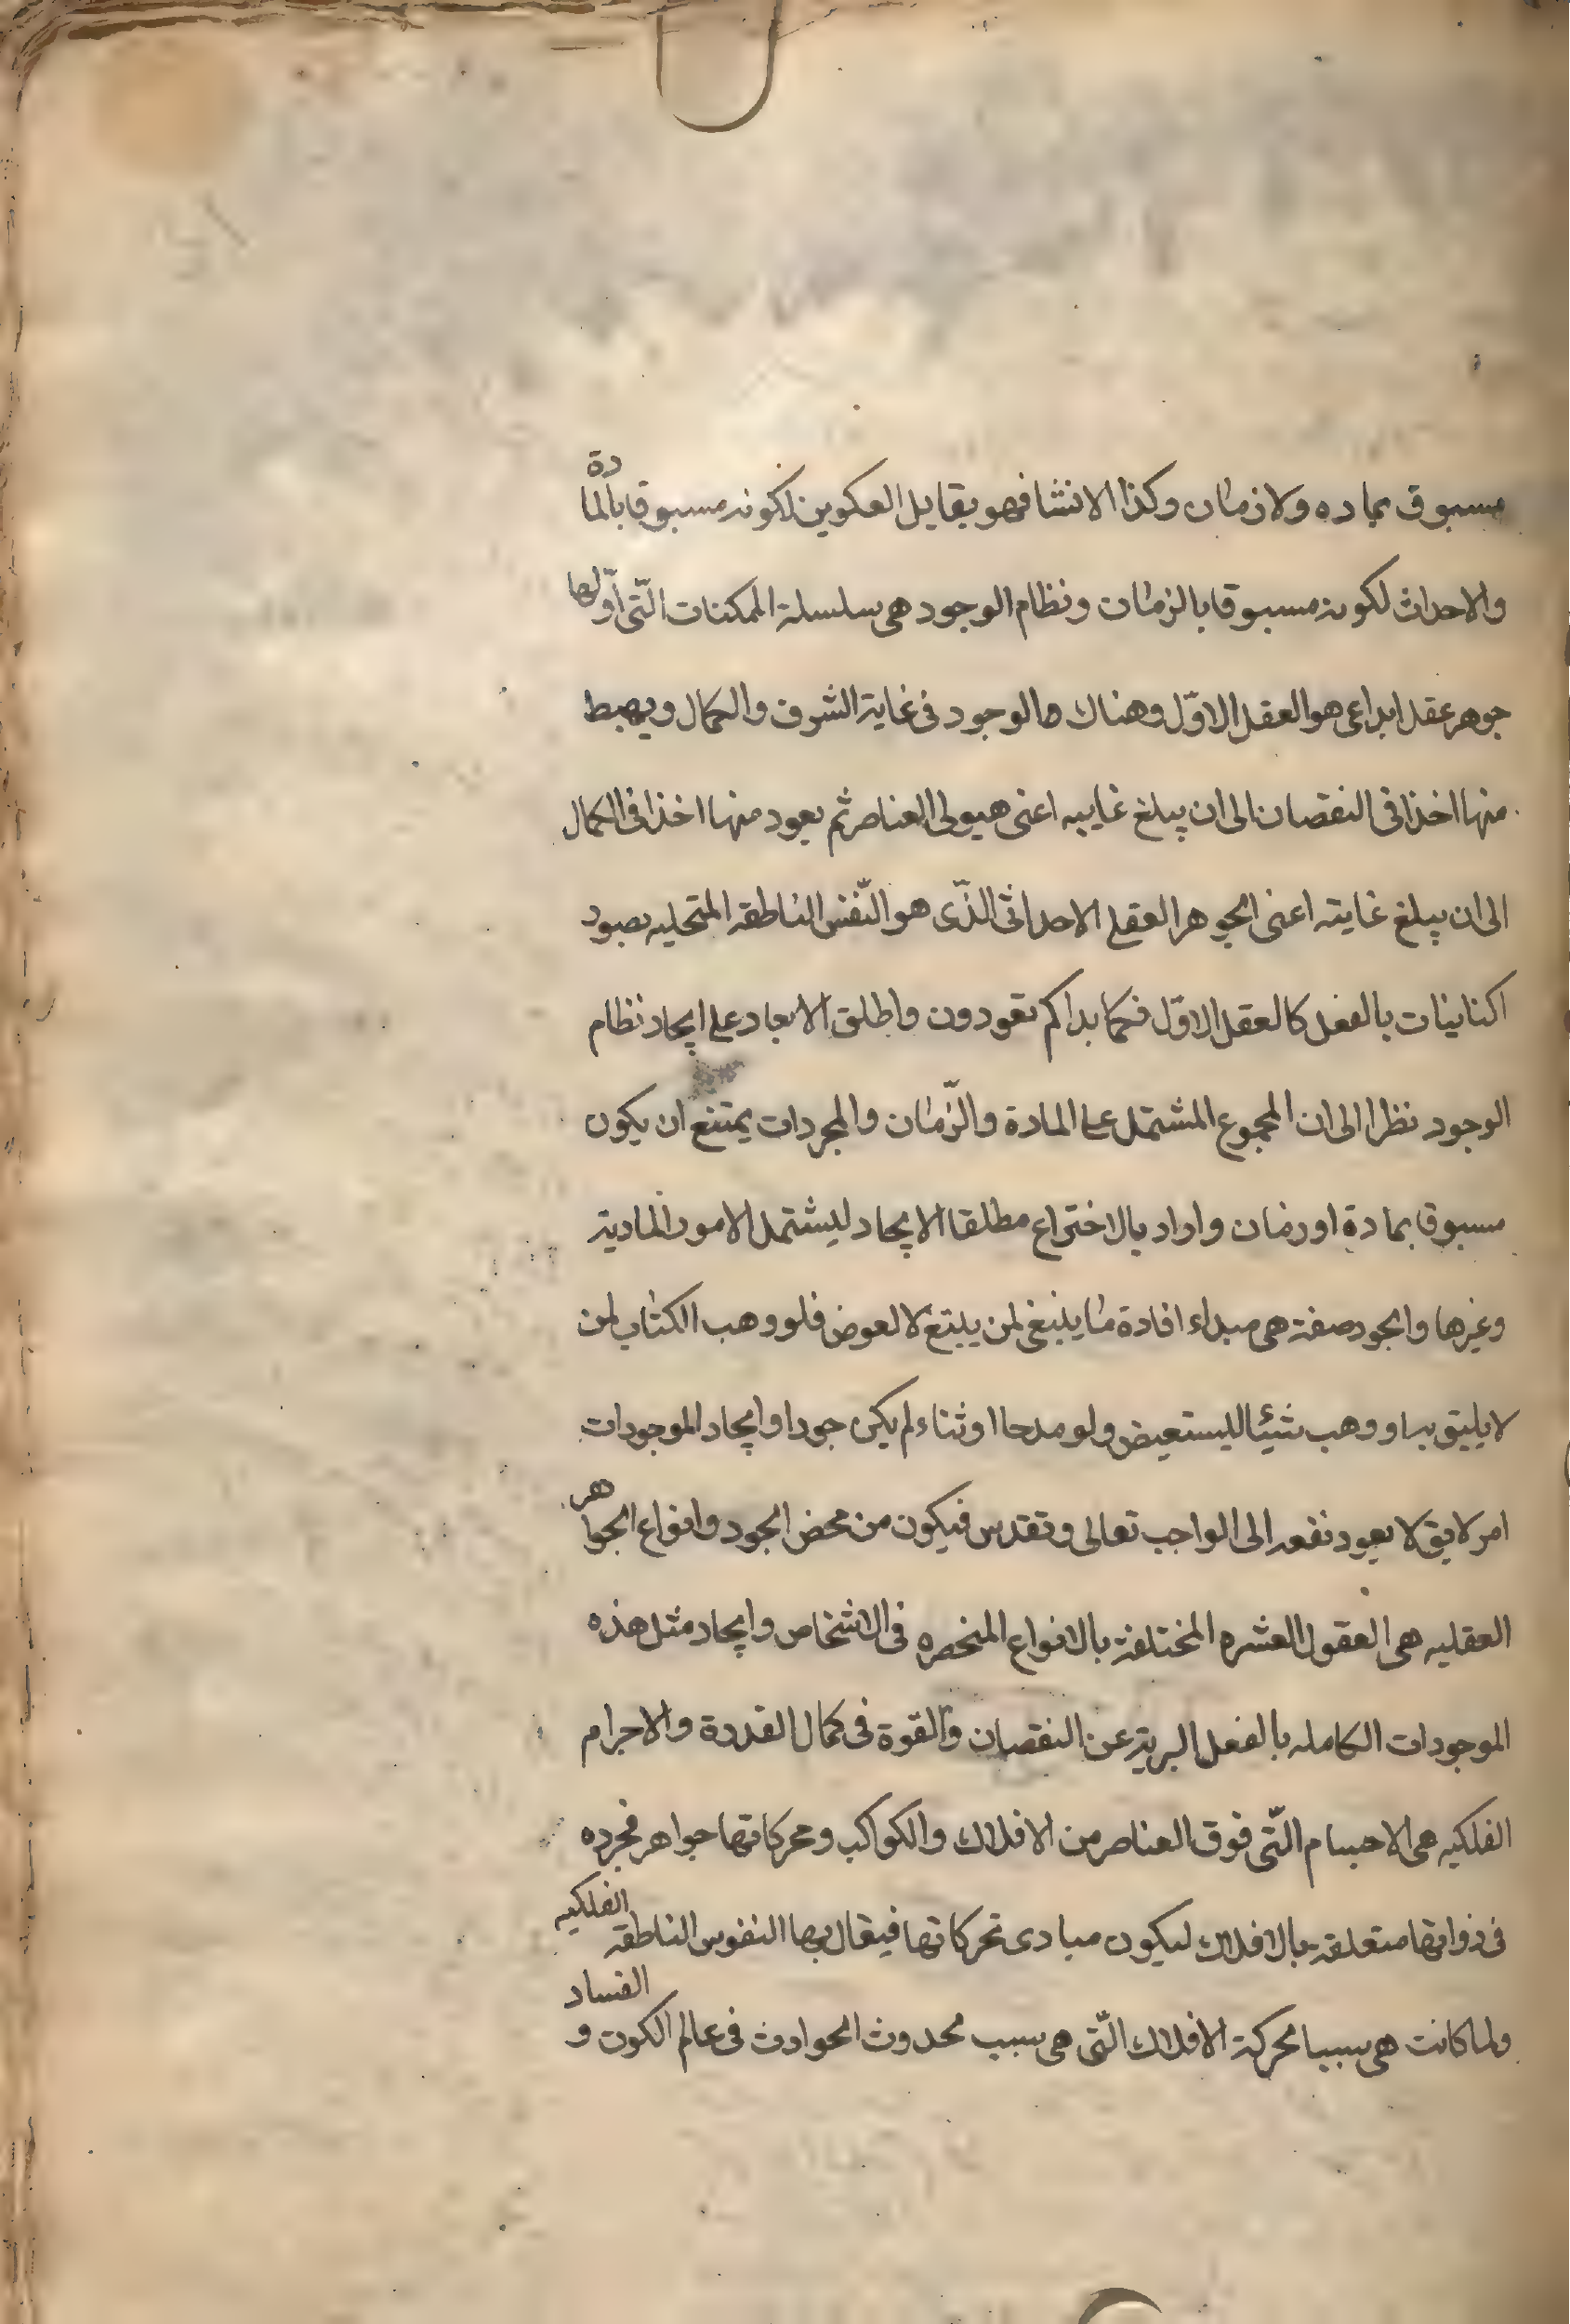 مسبوق بماده ولا زمان وكذا الانشا فهو يقابل العكوين لكونه مسبوقا بالمادة
والاحداث لكونه مسبوقا بالزمان ونظام الوجود هى سلسلة الممكنات الّتى اوّلها
جوهر عقل ابداعى هو العقل الاوّل وهناك صا الوجود فى غاية الشرف والكمال ويهبط
منها اخذا فى النقصان الى ان يبلغ غاييه اعنى هيولى العناصر ثم يعود منها اخذا فى الكمال
الى ان يبلغ غايته اعنى الجوهر العقلى الاحداثى الذّى هو النّفس الناطقه المتحليه بصود
اكناينات بالفعل كالعقل الاوّل فكما بداكم تعودون واطلق الابعاد على ايجاد نظام
الوجود نظرا الى ان المجموع المشتمل على المادة والزّمان والمجردات يمتنع ان يكون
مسبوقا بمادة او زمان واراد بالاختراع مطلقا الايجاد ليشتمل الامور المادية
وغيرها والجود صفة هى مبداء افادة ما ينبغى لمن يبتغ لا لعوض فلو وهب الكتاب لمن
لا يليق به او وهب شيئا ليستعيض ولو مدحا او ثناء لم يكن جودا وايجاد الموجودات
امر لايق لا يعود نفعه الى الواجب تعالى وتقدس فيكون من محض الجود وانواع الجواهر
العقليه هى العقول العشره المختلفة بالانواع المنحصره فى الاشخاص وايجاد مثل هذه
الموجودات الكامله بالفعل البرية عن النقصان والقوة فى كمال القدرة والاجرام
الفلكيه هى الاجسام الّتى فوق العناصر من الافلاك والكواكب ومحركاتها جواهر مجرده
فى ذواتها متعلقة بالافلاك ليكون مبادى تحركاتها فيقال بها النفوس الناطقه الفلكيه
ولما كانت هى سببا لحركة الافلاك الّتى هى سبب لحدوث الحوادث فى عالم الكون و الفساد